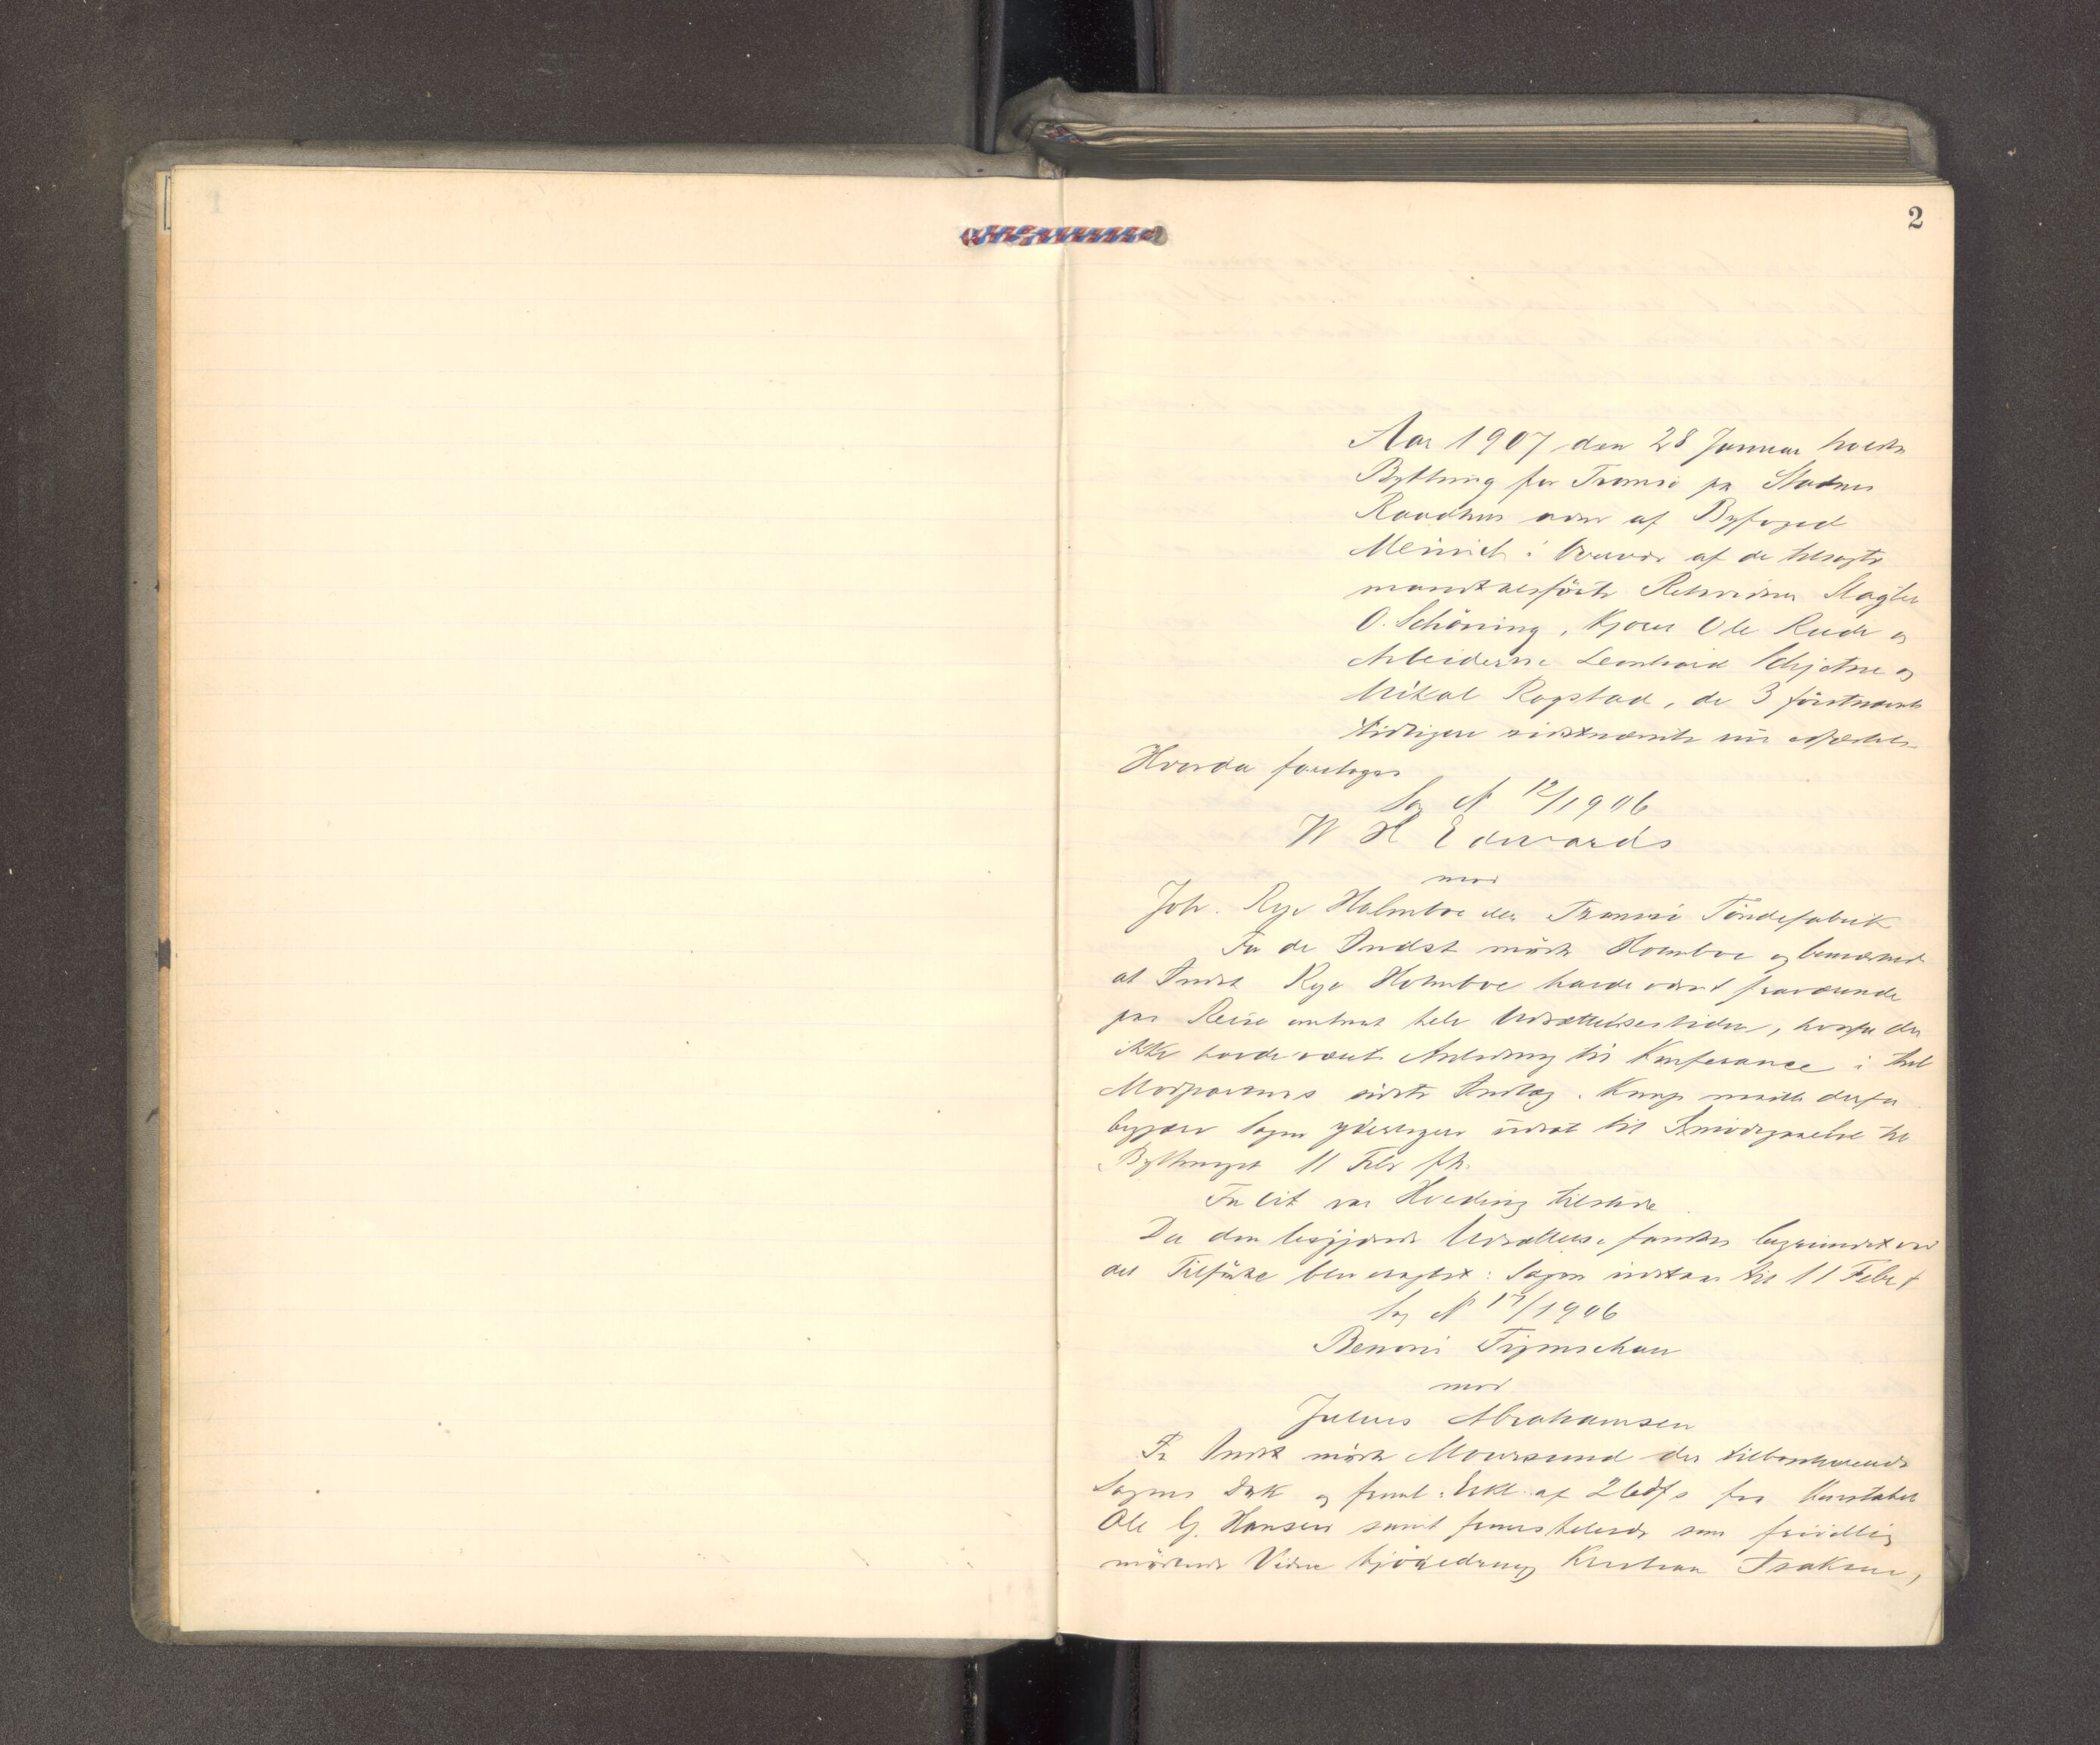 1
2
Aar 1907 den 28 Januar holdtes
Bything for Tromsö paa Stadens
Raadhus adm af Byfoged
Meinich i Overvær af de tilsagte
mandtalsförte Retsvidner Slagter
O. Schöning, Kjører Ole Rude og
Arbeiderne Leonhard Schjetne og
Mikal Rogstad, de 3 förstnævnte
tidligere sidstnævnte nu edfæstet.
Hvorda foretoges
Sag N 12/1906
W H Edwards
mod
Joh. Rye Holmboe eller Tromsö Töndefabrik
For de Indst mödte Holmboe og bemærkede
at Indst Rye Holmboe havde været fraværende
paa Reise omtrent hele Udsættelsestiden, hvorfor der
ikke havde været Anledning til Konferance i
Modpartens sidste Indlæg. Komp maatte derfor
begjære Sagen yderligere udsat til Imödegaaelse til
Bythinget 11 Febr
For Cit var Hveding tilstede.
Da den begjærte Udsættelse fandtes begrundet ved
det Tilförte blev eragtet: Sagen udstaar til 11 Febr
Sag N 17/1906
Benoni
mod
Julius Abrahamsen
For Indst mödte Moursund der tilbageleverede
Sagens Dok og freml. Erkl. af fra Konstabel
Ole G. Hansen samt fremstillede som frivillig
mödende Vidne Kristian Isaksen,